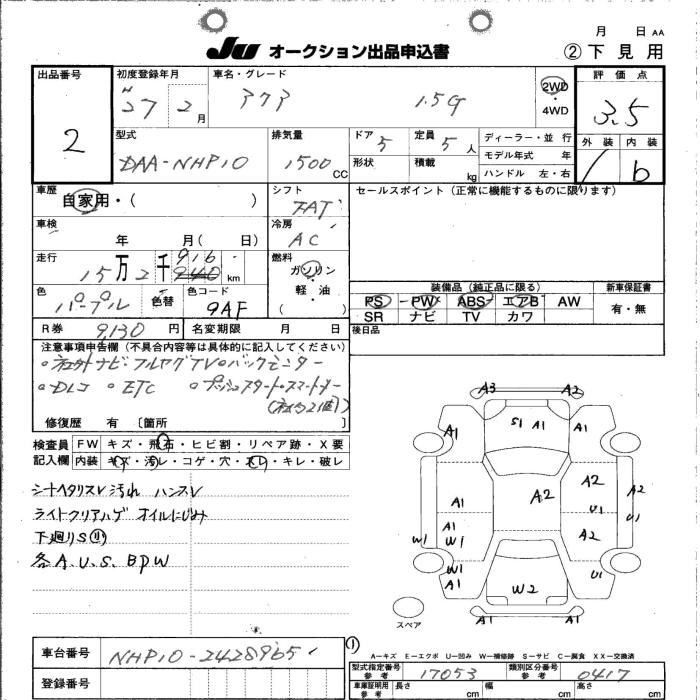 月 日 AA
JU オークション出品申込書 ②下見用
出品番号 初度登録年月 車名・グレード 評価点
2
H27 2月 アクア 1.5G 2WD ・ 4WD 3.5
外装 内装
b
型式 排気量 ドア 定員 ディーラー・並行
DAA-NHP10 1500 CC 5 5人 モデル年式 年
形状 積載 kg ハンドル 左・右
車歴 シフト セールスポイント(正常に機能するものに限ります)
自家用・( ) FAT
車検 冷房
年 月( 日) AC
走行 燃料
15万2千916 km ガソリン・軽・油 ( )
装備品(純正品に限る) 新車保証書
色 色替 色コード PS PW ABS エアB AW 有・無
パープル 9AF SR ナビ TV カワ
R券 9,130 円 名変期限 月 日 後日品
注意事項申告欄(不具合内容等は具体的に記入してください)
○社外ナビ・フルセグTV○バックモニター
○DLコ ○ETC ○プッシュスタート・スマートキー
修復歴 有 〔箇所 〕
検査員 FW キズ・飛石・ヒビ割・リペア跡・X要
記入欄 内装 キズ・汚レ・コゲ・穴・スレ・キレ・破レ
シートヘタリスレ汚れ ハンスレ
ライトクリアハゲ オイルにじみ
下廻りS
各A.U.S.BPW
A3 A2
A1 S1 A1 A1
A2
A1 A2 U1 A2 U1
A1 W1 W1 A2
W1 A1 U1
W2
A1 A2
スペア
①
A-キズ E-エクボ U-凹み W-補修跡 S-サビ C-腐食 XX-交換済
車台番号 NHP10-2428965
型式指定番号 参考 17053 類別区分番号 参考 0417
登録番号
車庫証明用 参考 長さ cm 幅 cm 高さ cm